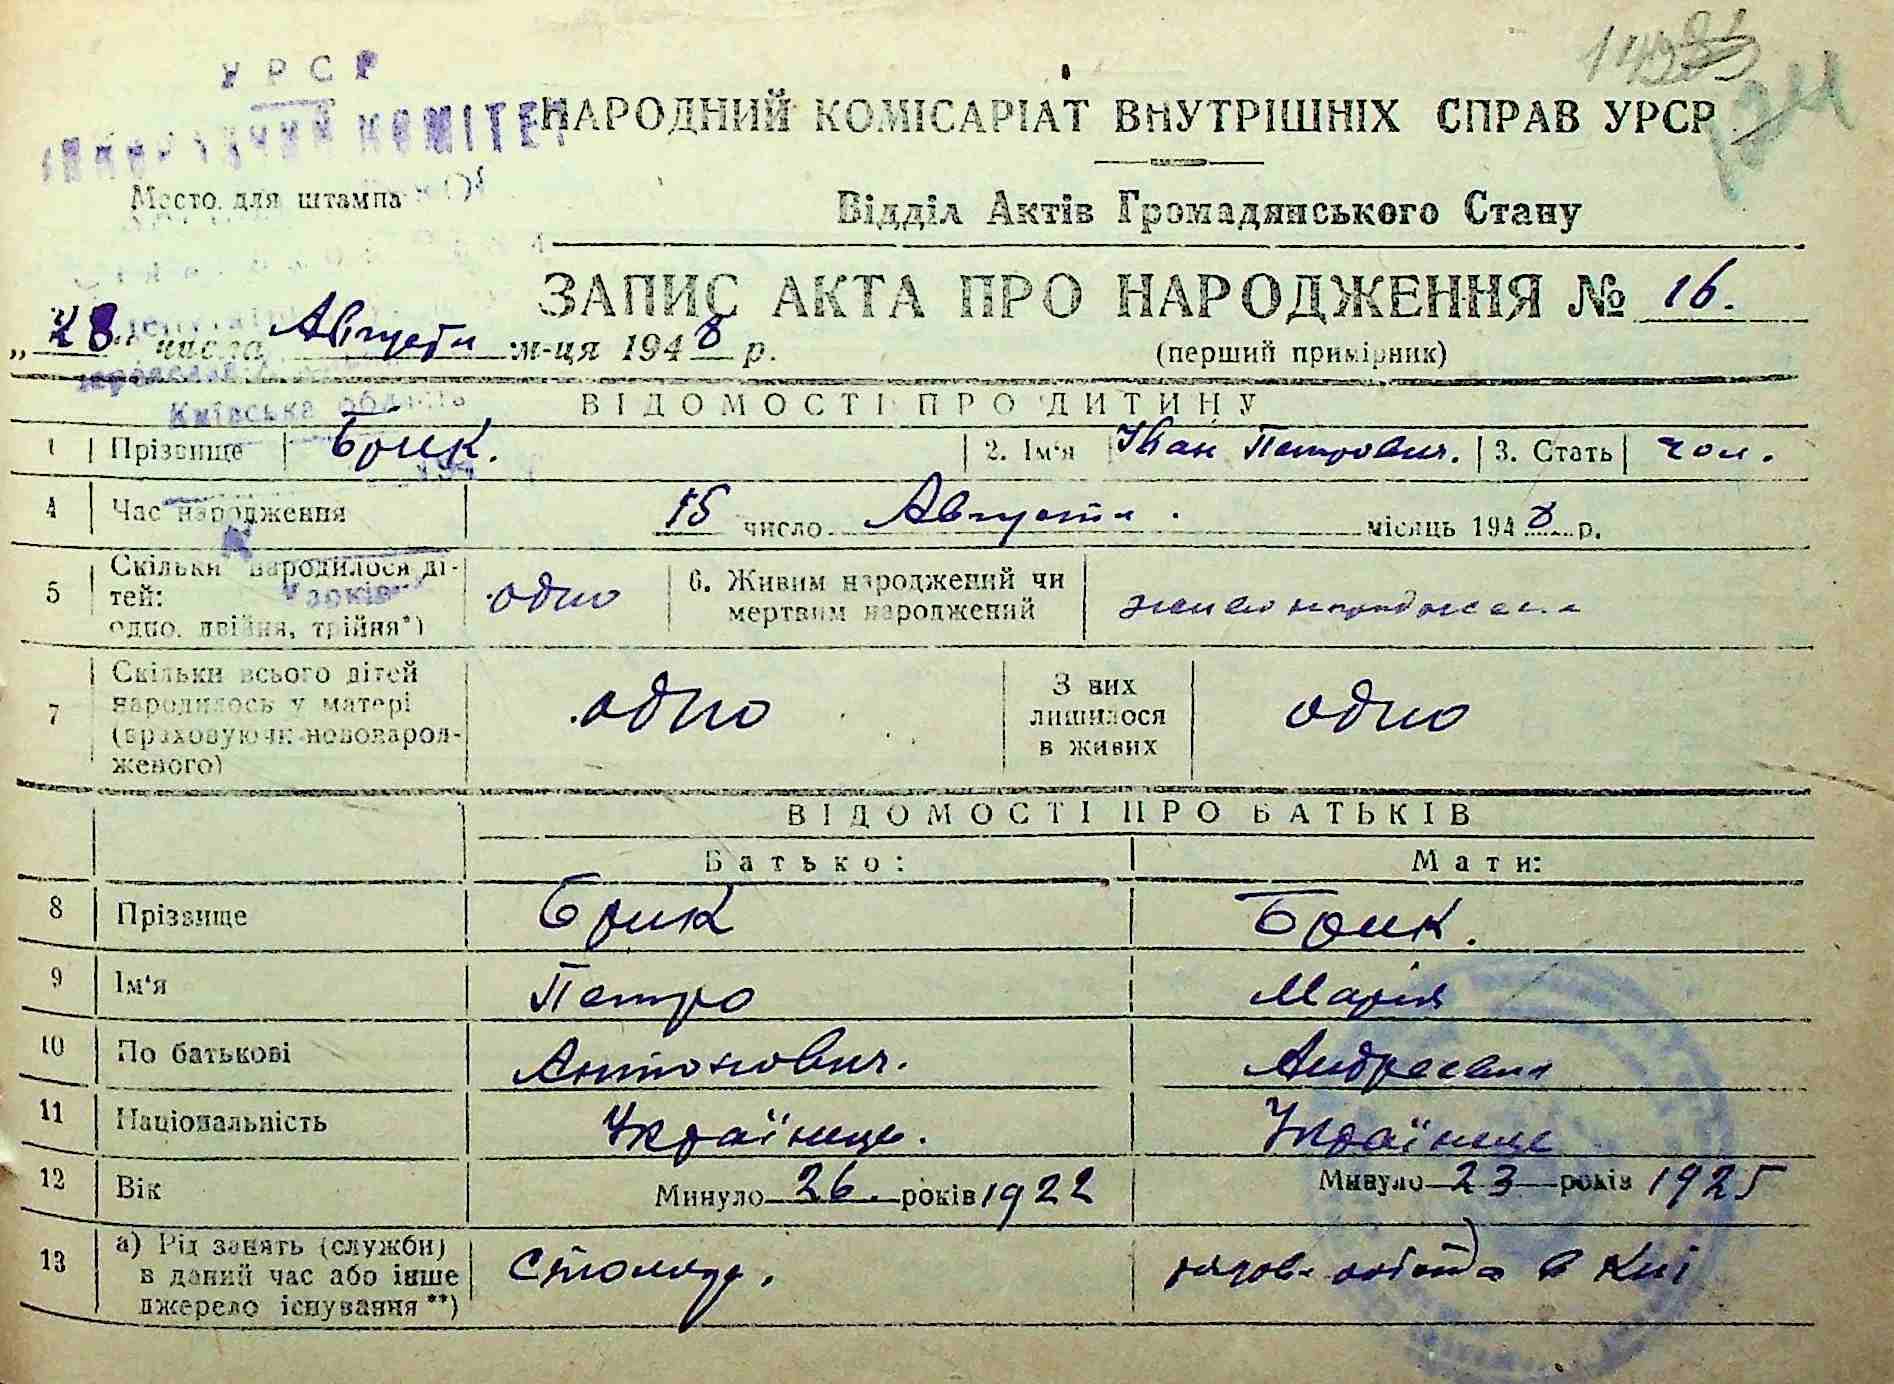 УРСР
КОМІТЕТ
НАРОДНИЙ КОМІСАРІАТ ВНУТРІШНІХ СПРАВ УРСР
Место для штампа
Відділ Актів Громадянського Стану
ЗАПИС АКТА ПРО НАРОДЖЕННЯ № 16.
„28 числа Августа м-ця 1948 р.
(перший примірник)
Київська область
ВІДОМОСТІ ПРО ДИТИНУ
1 Прізвище Брик. 2. Ім'я Іван Петрович. 3. Стать чол.
4 Час народження 15 число Августа місяць 1948 р.
5 Скільки народилося ді-
тей:
одно, двійня, трійня*) одно 6. Живим народжений чи
мертвим народжений
7 Скільки всього дітей
народилось у матері
(враховуючи новонарод-
женого) одно З них
лишилося
в живих одно
ВІДОМОСТІ ПРО БАТЬКІВ
Батько: Мати:
8 Прізвище Брик Брик.
9 Ім'я Петро Марія
10 По батькові Антонович. Андреевна
11 Національність Українець. Українец
12 Вік Минуло 26. років 1922 Минуло 23 років 1925
13 а) Рід занять (служби)
в даний час або інше
джерело існування**) Столяр. в Кні